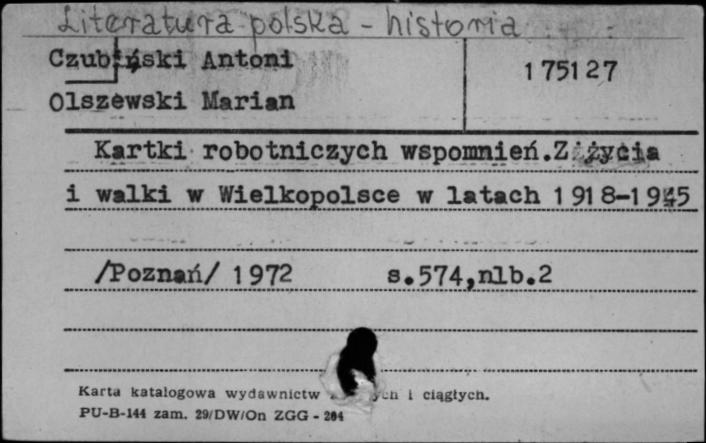 Literatura polska - historia
Czubiński Antoni
175127
Olszewski Marian
Kartki robotniczych wspomnień. Z życia
i walki w Wielkopolsce w latach 1918-1945
/Poznań/ 1972 s.574,nlb.2
Karta katalogowa wydawnictw i ciągłych.
PU-B-144 zam. 29/DW/On ZGG - 264